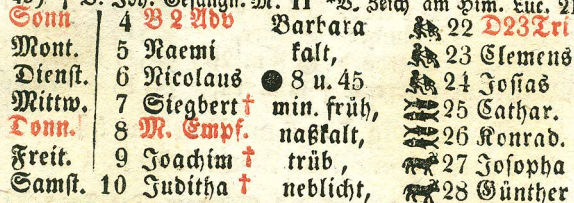 Z. Joh. Gefängn. M. 11 Zeich am Him. Luc. 21
Sonn 4 B 2 Adv Barbara 22 D23Tri
Mont. 5 Naemi kalt, 23 Clemens
Dienst. 6 Nicolaus ● 8 u. 45 24 Josias
Mittw. 7 Siegbert † min. früh, 25 Cathar.
Donn. 8 M. Empf. naßkalt, 26 Konrad.
Freit. 9 Joachim † trüb, 27 Josopha
Samst. 10 Juditha † neblicht, 28 Günther